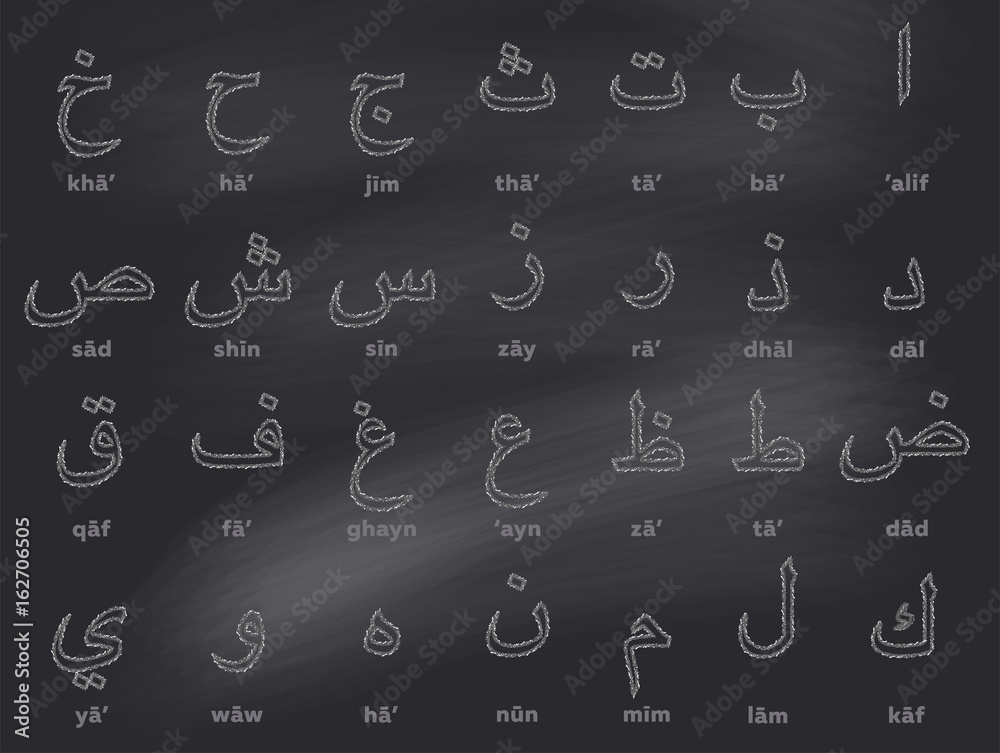 ا ب ت ث ج ح خ
’alif bā’ tā’ thā’ jīm hā’ khā’
د ذ ر ز س ش ص
dāl dhāl rā’ zāy sīn shīn sād
ض ط ظ ع غ ف ق
dād tā’ zā’ ‘ayn ghayn fā’ qāf
ك ل م ن ه و ي
kāf lām mīm nūn hā’ wāw yā’
Adobe Stock | #162706505